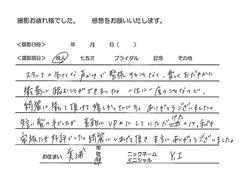 撮影お疲れ様でした。　感想をお願いいたします。
＜撮影日時＞　年　月　日（　）
＜撮影項目＞　成人　七五三　ブライダル　記念　その他
スタッフの皆さんの声かけで緊張もせず、楽しくおだやかに
撮影に臨むことができました。一生に一度のことなので、
綺麗に撮って頂けて嬉しかったです。ありがとうございました。
短い髪の毛でしたが、素敵にUPみたいにしていただけて、私も
家族にも好評だった綺麗にしあげて頂き本当にありがとうございました。
お住まい　美浦　ニックネーム
イニシャル　Y.I